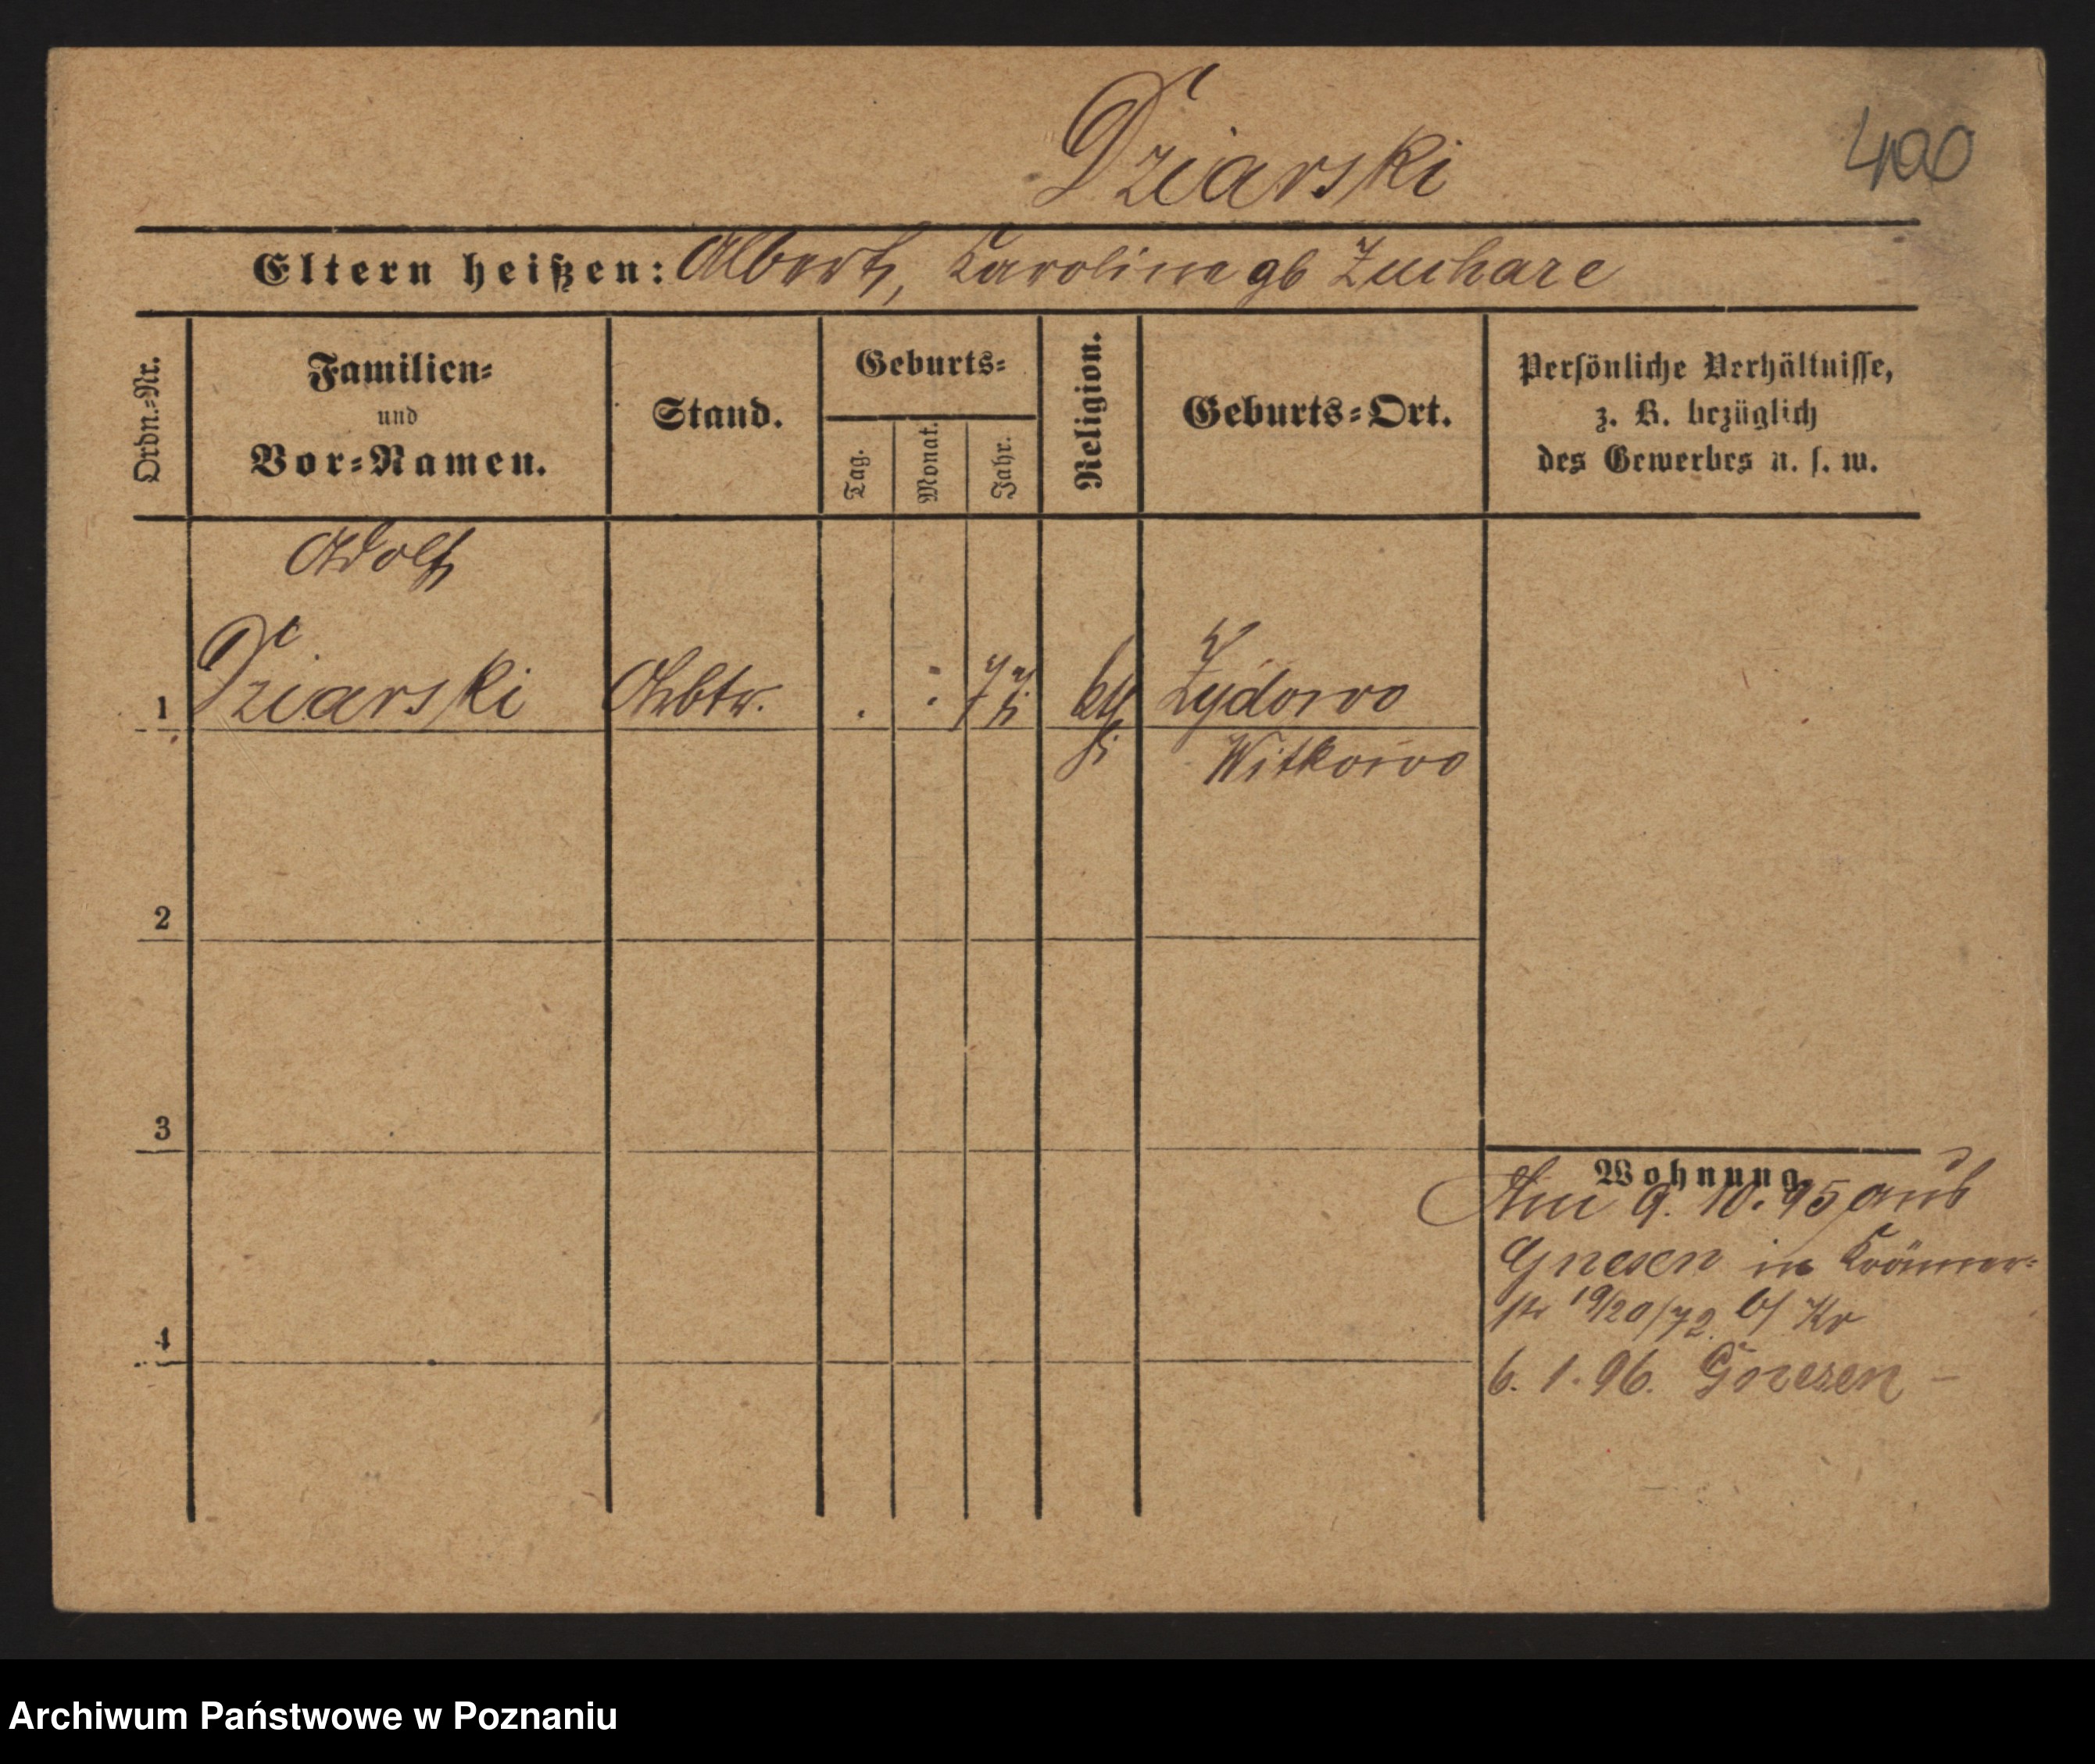 Dziarski
400
Eltern heißen: Albert, Karoline gb Zuchare
Ordn.-Nr.
Familien-
und
Vor-Namen.
Stand.
Geburts-
Tag.
Monat.
Jahr.
Religion.
Geburts-Ort.
Persönliche Verhältnisse,
z. B. bezüglich
des Gewerbes u. s. w.
Adolf
1 Dziarski Arbtr. 77 Zydowo
Witkowo
2
3
4
Wohnung.
Am 9. 10. 95 aus
Gnesen in Krämer-
str 19/20/72. b/ Kr
6. 1. 96. Gnesen –
Archiwum Państwowe w Poznaniu